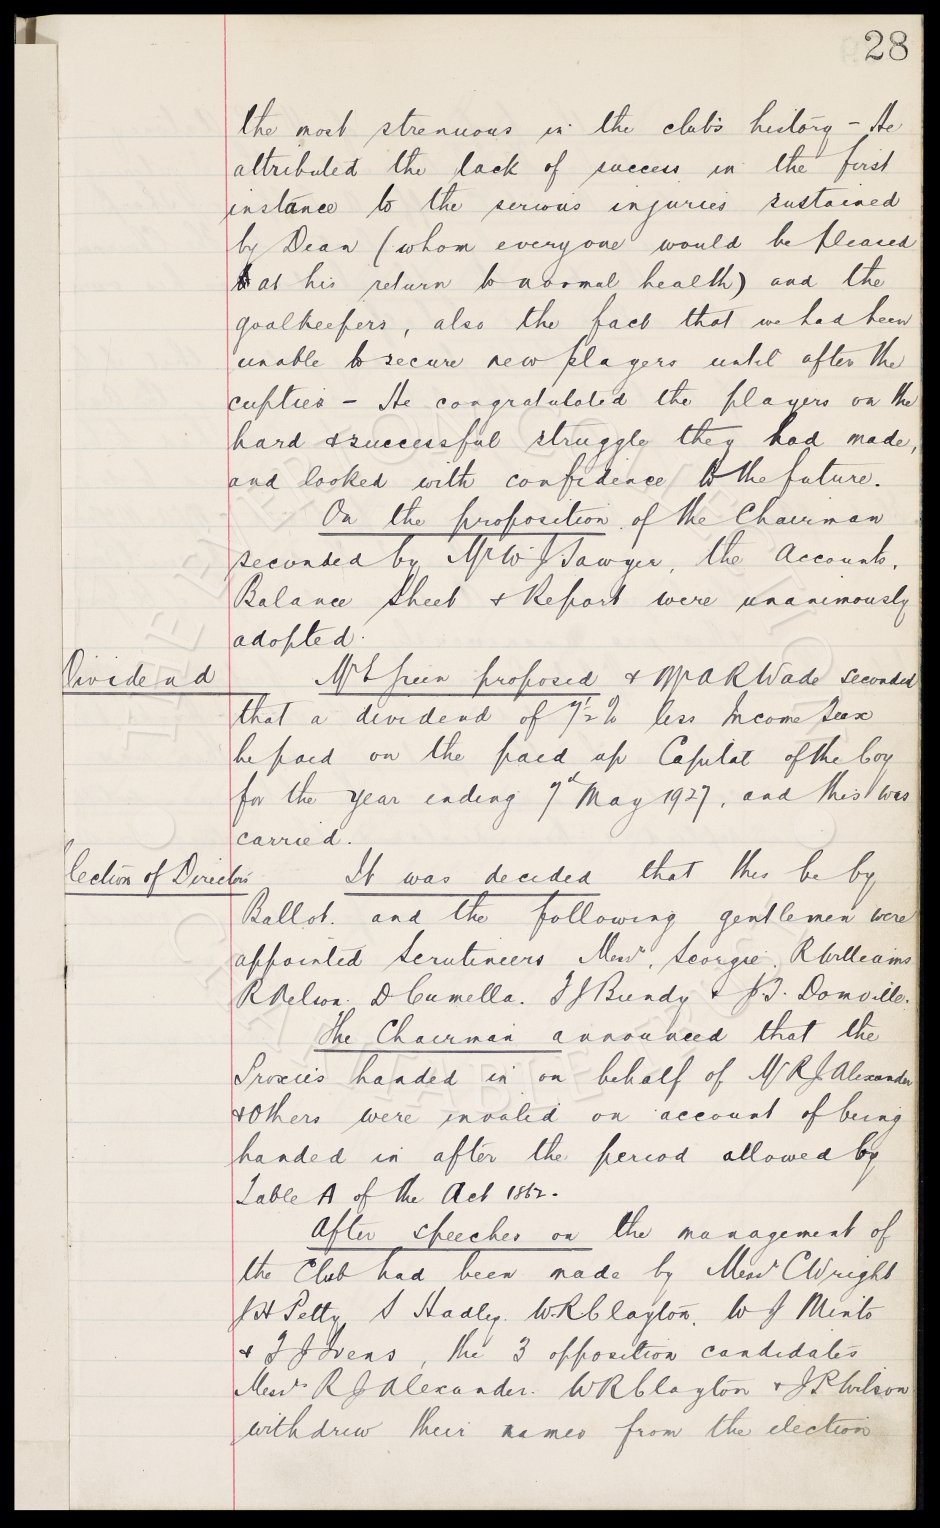 28
the most strenuous in the club's history - He
attributed the lack of success in the first
instance to the serious injuries sustained
by Dean (whom everyone would be pleased
at his return to normal health) and the
goalkeepers, also the fact that we had been
unable to secure new players until after the
cupties - He congratulated the players on the
hard & successful struggle they had made,
and looked with confidence to the future.
On the proposition of the Chairman
seconded by Mr W J Sawyer, the Accounts,
Balance Sheet & Report were unanimously
adopted.
Dividend Mr S Green proposed & Mr A R Wade seconded
that a dividend of 7½% less Income Tax
be paid on the paid up Capital of the Coy
for the year ending 7th May 1927, and this was
carried.
lection of Directors It was decided that this be by
Ballot. and the following gentlemen were
appointed Scrutineers Messrs. Scorgie, R Williams
R Nelson. D Cumella. T J Bundy & J T. Domville.
The Chairman announced that the
Proxies handed in on behalf of Mr R J Alexander
& Others were invalid on account of being
handed in after the period allowed by
Table A of the Act 1862.
After speeches on the management of
the Club had been made by Messrs C Wright
J H Petty, S Hadley. W. R Clayton, W J Minto
& T J Ivens, the 3 opposition candidates
Messrs R J Alexander. W R Clayton & J P Wilson
withdrew their names from the election